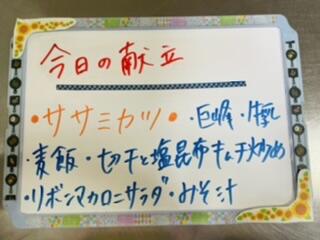 今日の献立
・ササミカツ・・巨峰・牛乳
・麦飯・切干と塩昆布キムチ炒め
・リボンマカロニサラダ・みそ汁